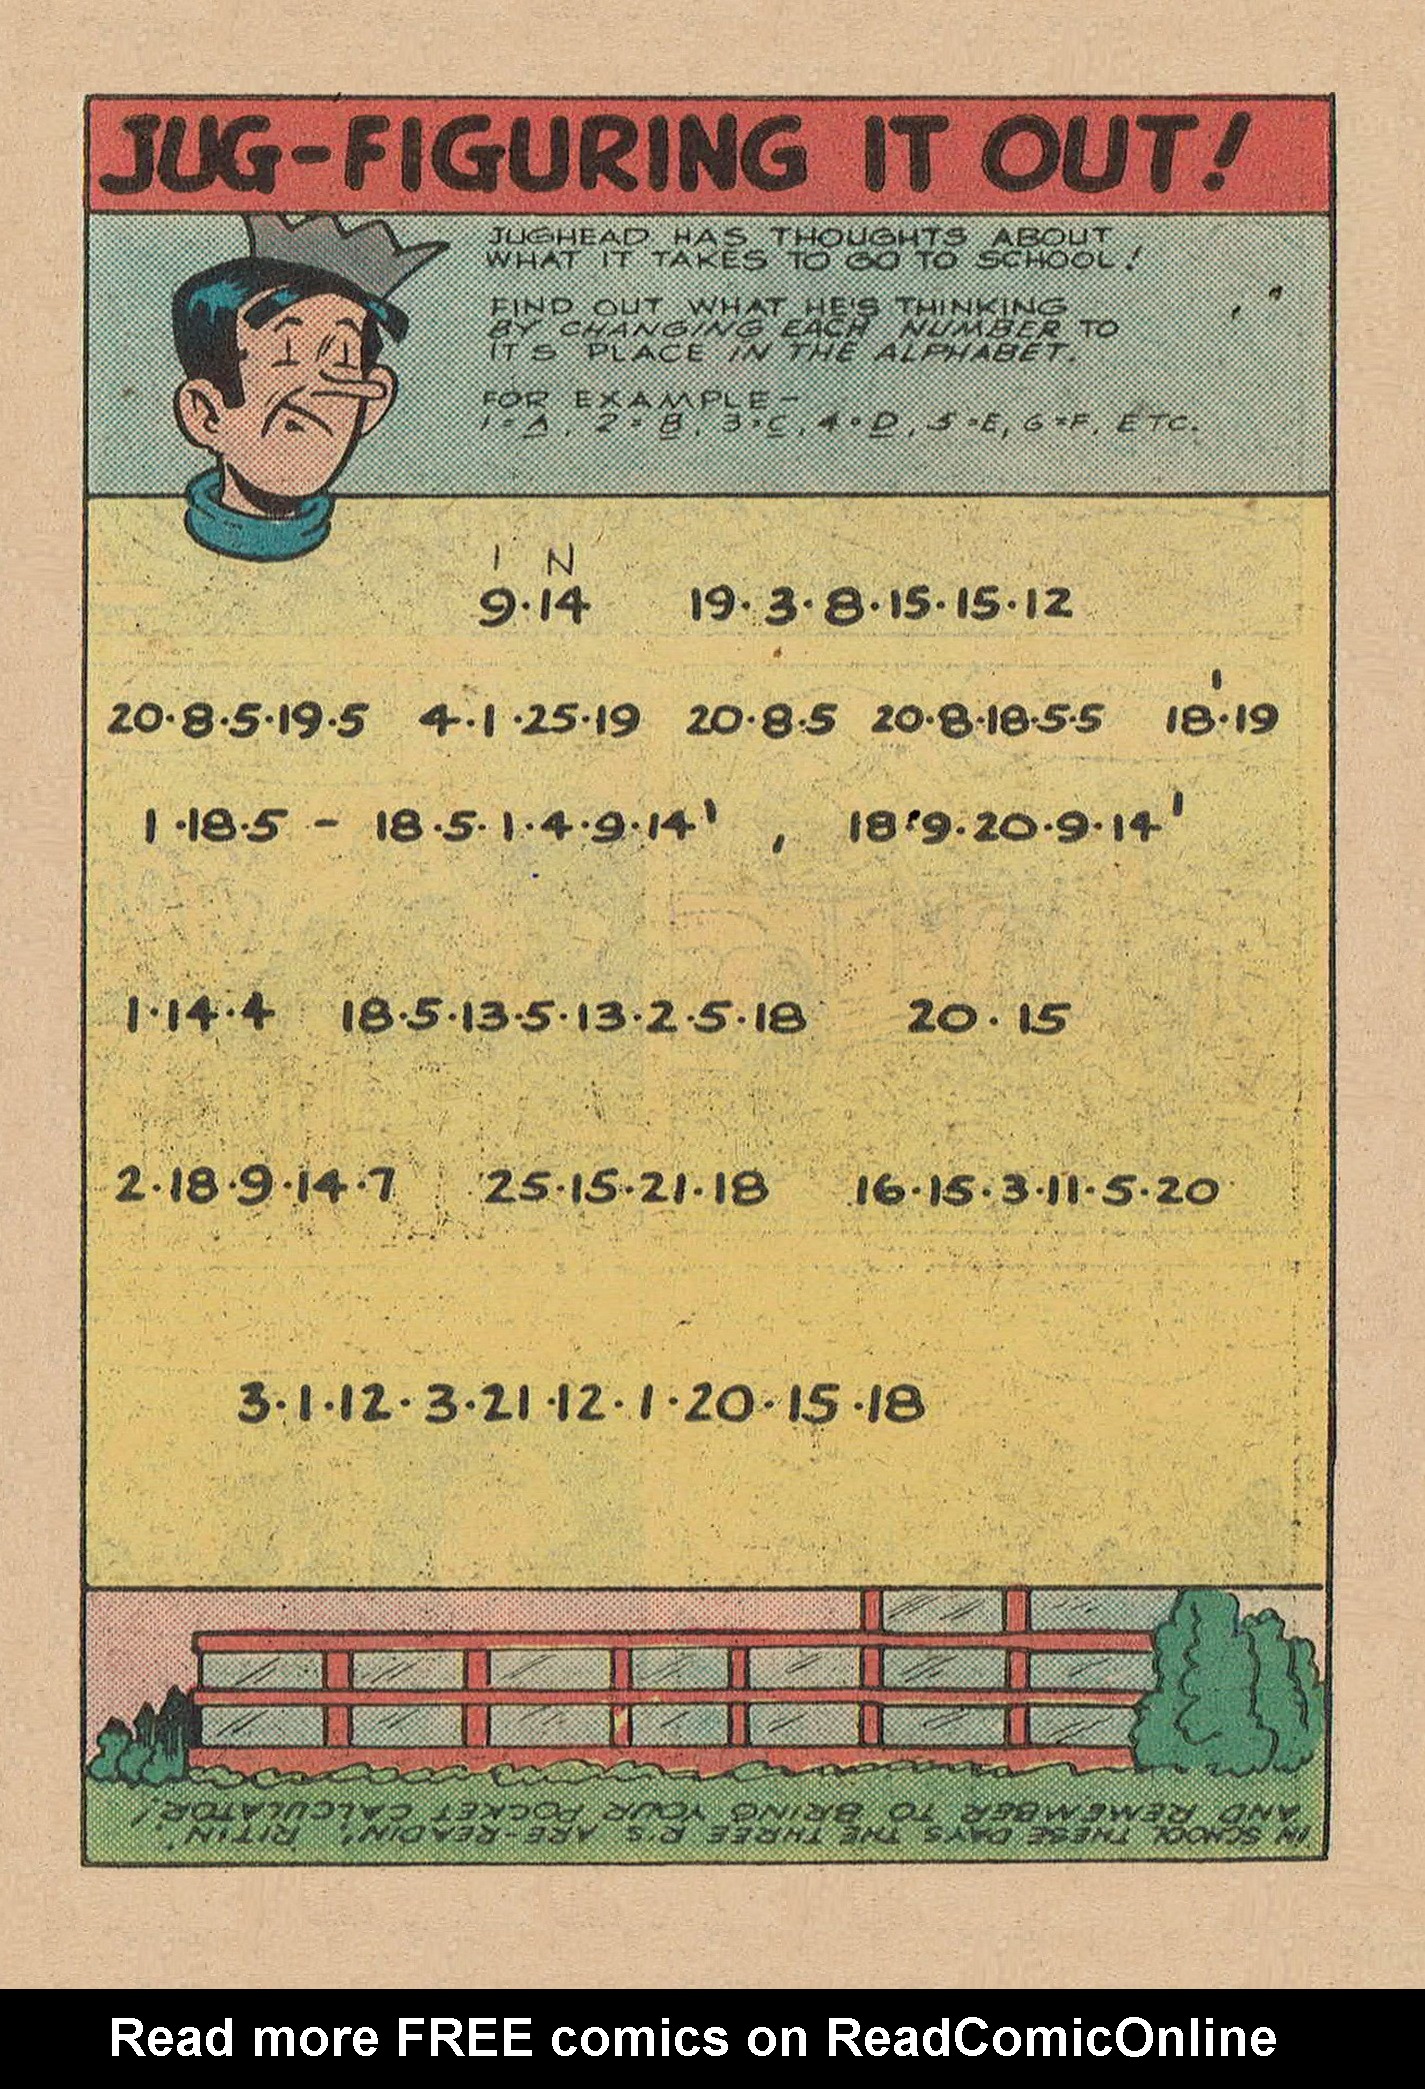 JUG-FIGURING IT OUT!
JUGHEAD HAS THOUGHTS ABOUT
WHAT IT TAKES TO GO TO SCHOOL!
FIND OUT WHAT HE'S THINKING
BY CHANGING EACH NUMBER TO
IT'S PLACE IN THE ALPHABET.
FOR EXAMPLE-
1=A, 2=B, 3=C, 4=D, 5=E, 6=F, ETC.
I N
9·14 19·3·8·15·15·12
20·8·5·19·5 4·1·25·19 20·8·5 20·8·18·5·5 18'19
1·18·5 - 18·5·1·4·9·14' , 18'9·20·9·14'
1·14·4 18·5·13·5·13·2·5·18 20·15
2·18·9·14·7 25·15·21·18 16·15·3·11·5·20
3·1·12·3·21·12·1·20·15·18
IN SCHOOL THESE DAYS THE THREE R'S ARE-READIN', 'RITIN'
AND REMEMBER TO BRING YOUR POCKET CALCULATOR!
Read more FREE comics on ReadComicOnline